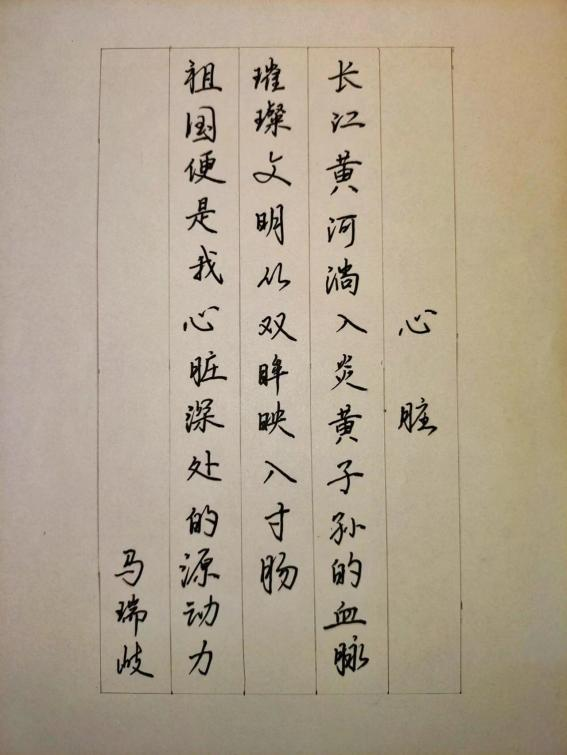 心脏
长江黄河淌入炎黄子孙的血脉
璀璨文明从双眸映入寸肠
祖国便是我心脏深处的源动力
马瑞岐